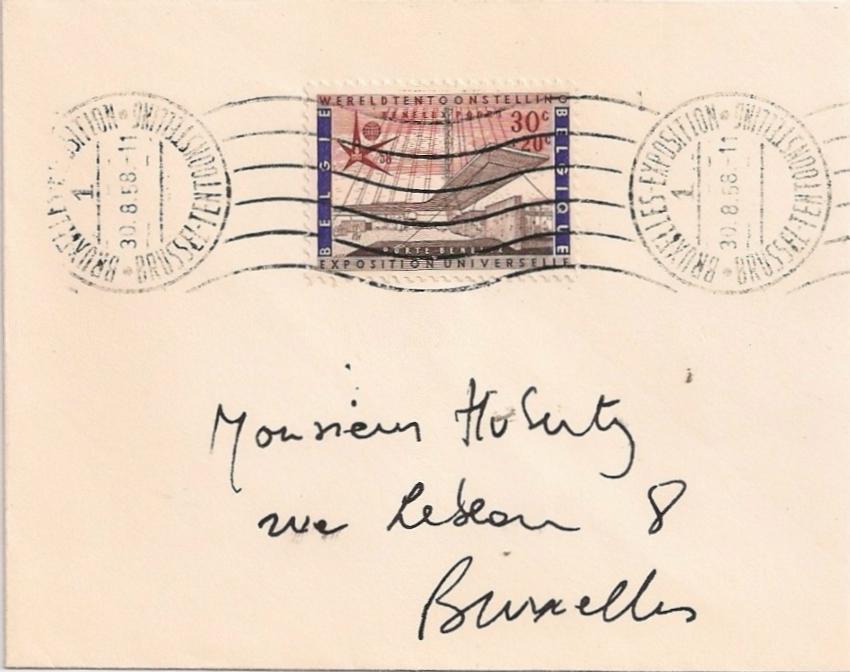 BRUXELLES-EXPOSITION · BRUSSEL-TENTOONSTELLING
1
30.8.58-11
WERELDTENTOONSTELLING
BENELUX POORT
BELGIE
BELGIQUE
30c
20c
58
PORTE BENELUX
EXPOSITION UNIVERSELLE
BRUXELLES-EXPOSITION · BRUSSEL-TENTOONSTELLING
1
30.8.58-11
Monsieur Huberty
rue 8
Bruxelles